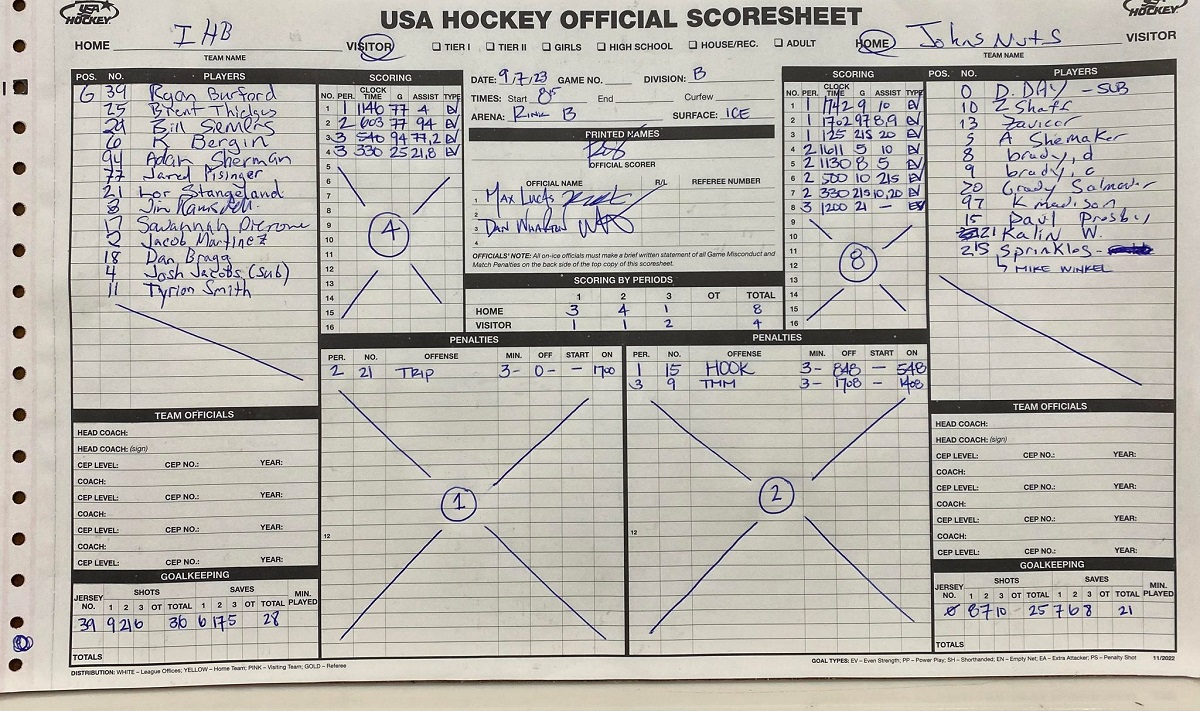 USA HOCKEY
USA HOCKEY OFFICIAL SCORESHEET
USA HOCKEY
HOME IHB VISITOR
TEAM NAME
☐ TIER I ☐ TIER II ☐ GIRLS ☐ HIGH SCHOOL ☐ HOUSE/REC. ☐ ADULT
HOME Johns Nuts VISITOR
TEAM NAME
POS. NO. PLAYERS
G 39 Ryan Burford
25 Brent Thidges
29 Bill Semers
6 K Bergin
94 Adam Sherman
77 Jared Pisinger
21 Lor Stangeland
8 Jim
17 Savannah
2 Jacob Martinez
18 Dan Bragg
4 Josh Jacobs (sub)
11 Tyrion Smith
SCORING
NO. PER. CLOCK TIME G ASSIST TYPE
1 1 1146 77 4 EV
2 2 603 77 94 EV
3 3 540 94 77,2 EV
4 3 330 25 21,8 EV
5
6
7
8
9
10
11
12
13
14
15
16
4
DATE: 9/7/23 GAME NO. DIVISION: B
TIMES: Start 815 End Curfew
ARENA: RINK B SURFACE: ICE
PRINTED NAMES
OFFICIAL SCORER
OFFICIAL NAME R/L REFEREE NUMBER
1 MAX LUCAS
2
3 DAN WHARTON
4
OFFICIALS' NOTE: All on-ice officials must make a brief written statement of all Game Misconduct and
Match Penalties on the back side of the top copy of this scoresheet.
SCORING BY PERIODS
1 2 3 OT TOTAL
HOME 3 4 1 8
VISITOR 1 1 2 4
SCORING
NO. PER. CLOCK TIME G ASSIST TYPE
1 1 1742 9 10 EV
2 1 1702 97 8,9 EV
3 1 125 215 20 EV
4 2 1611 5 10 EV
5 2 1130 8 5 EV
6 2 500 10 215 EV
7 2 330 215 10,20 EV
8 3 1200 21 - EV
9
10
11
12
13
14
15
16
8
POS. NO. PLAYERS
0 D. DAY - SUB
10 Z Shaff
13 Zavicar
5 A Shemaker
8 brady, d
9 brady, c
20 Grady Salmader
97 K madison
15 Paul Prosby
21 Kalin W.
215 Sprinkles -
↳ MIKE WINKEL
PENALTIES
PER. NO. OFFENSE MIN. OFF START ON
2 21 TRIP 3- 0- - 1700
12
1
PENALTIES
PER. NO. OFFENSE MIN. OFF START ON
1 15 HOOK 3- 848 - 548
3 9 TMM 3- 1708 - 1408
12
2
TEAM OFFICIALS
HEAD COACH:
HEAD COACH: (sign)
CEP LEVEL: CEP NO.: YEAR:
COACH:
CEP LEVEL: CEP NO.: YEAR:
COACH:
CEP LEVEL: CEP NO.: YEAR:
COACH:
CEP LEVEL: CEP NO.: YEAR:
GOALKEEPING
JERSEY NO. SHOTS SAVES MIN. PLAYED
1 2 3 OT TOTAL 1 2 3 OT TOTAL
39 9 21 6 36 6 17 5 28
TOTALS
TEAM OFFICIALS
HEAD COACH:
HEAD COACH: (sign)
CEP LEVEL: CEP NO.: YEAR:
COACH:
CEP LEVEL: CEP NO.: YEAR:
COACH:
CEP LEVEL: CEP NO.: YEAR:
COACH:
CEP LEVEL: CEP NO.: YEAR:
GOALKEEPING
JERSEY NO. SHOTS SAVES MIN. PLAYED
1 2 3 OT TOTAL 1 2 3 OT TOTAL
0 8 7 10 25 7 6 8 21
TOTALS
DISTRIBUTION: WHITE – League Offices; YELLOW – Home Team; PINK – Visiting Team; GOLD – Referee
GOAL TYPES: EV – Even Strength; PP – Power Play; SH – Shorthanded; EN – Empty Net; EA – Extra Attacker; PS – Penalty Shot 11/2022